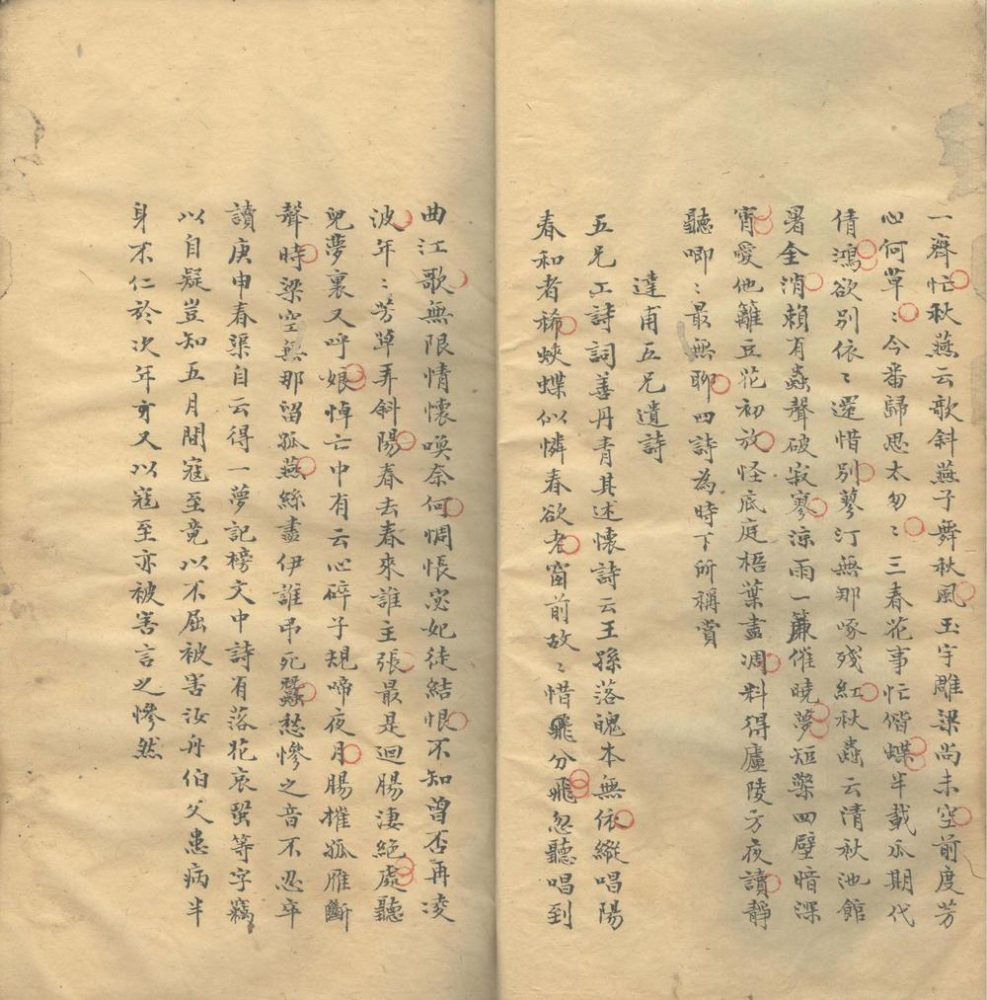 一齊忙秋燕云歌斜燕子舞秋風玉宇雕梁尚未空前度芳
心何草〻今番歸思太匆〻三春花事忙偕蝶半載瓜期代
倩鴻欲別依〻還惜別蓼汀無那啄殘紅秋蟲云清秋池館
暑全消賴有蟲聲破寂寥涼雨一簾催曉夢短檠四壁暗深
宵愛他籬豆花初放怪底庭梧葉盡凋料得廬陵方夜讀靜
聽唧〻最無聊四詩為時下所稱賞
達甫五兄遺詩
五兄工詩詞善丹青其述懷詩云王孫落魄本無依縱唱陽
春和者稀蛺蝶似憐春欲老窗前故〻惜分飛忽聽唱到
曲江歌無限情懷喚奈何惆悵宓妃徒結恨不知曾否再凌
波年〻芳草弄斜陽春去春來誰主張最是迴腸淒絕處聽
兒夢裏又呼娘悼亡中有云心碎子規啼夜月腸摧孤雁斷
聲時梁空無那留孤燕絲盡伊誰弔死蠶愁慘之音不忍卒
讀庚申春渠自云得一夢記榜文中詩有落花哀蛩等字竊
以自疑豈知五月間寇至竟以不屈被害汝舟伯父患病半
身不仁於次年亦又以寇至亦被害言之慘然